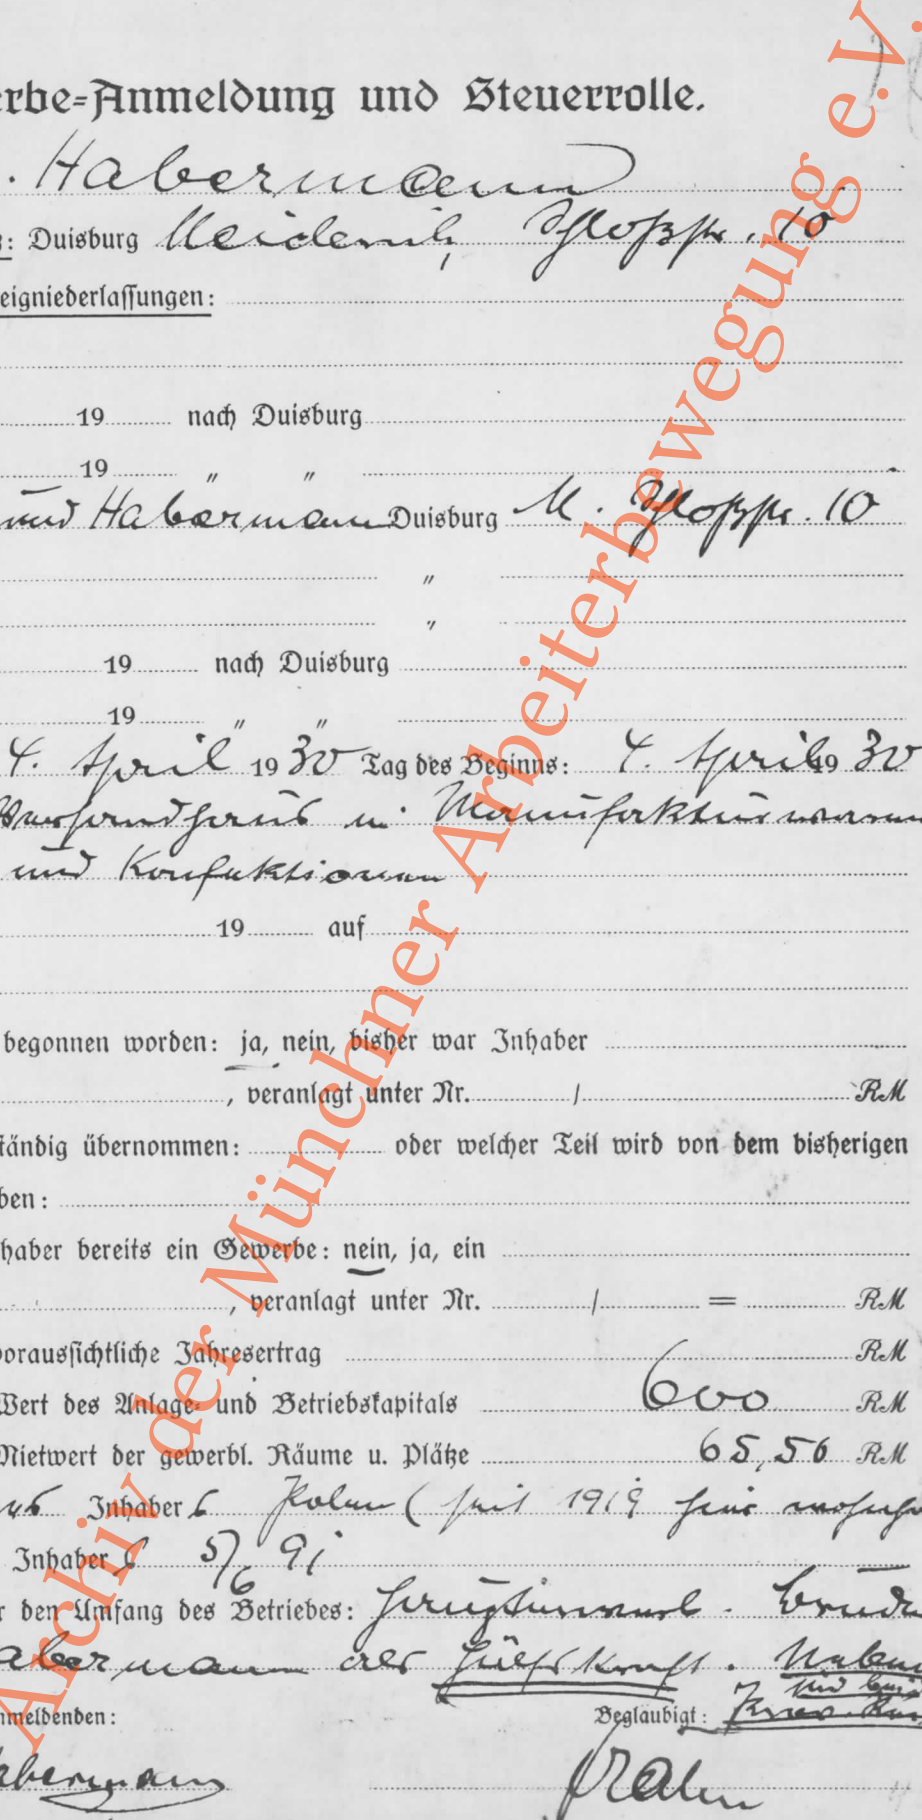 erbe-Anmeldung und Steuerrolle.
. Habermann
: Duisburg Meiderich, Schloßstr. 10
eigniederlassungen:
19 nach Duisburg
19 " "
und Habermann Duisburg M. Schloßstr. 10
"
"
19 nach Duisburg
19 " "
4. April 1930 Tag des Beginns: 4. April 1930
Versandhaus in Manufakturwaren
und Konfektionen
19 auf
begonnen worden: ja, nein, bisher war Inhaber
, veranlagt unter Nr. / RM
tändig übernommen: oder welcher Teil wird von dem bisherigen
ben:
haber bereits ein Gewerbe: nein, ja, ein
, veranlagt unter Nr. / = RM
oraussichtliche Jahresertrag RM
Wert des Anlage- und Betriebskapitals 600 RM
Mietwert der gewerbl. Räume u. Plätze 65,56 RM
Inhabers Polen (seit 1919 hier wohnh
Inhabers 5/6 91
r den Umfang des Betriebes:
abermann als Hülfskraft.
nmeldenden: Beglaubigt:
abermann
Archiv der Münchner Arbeiterbewegung e.V.